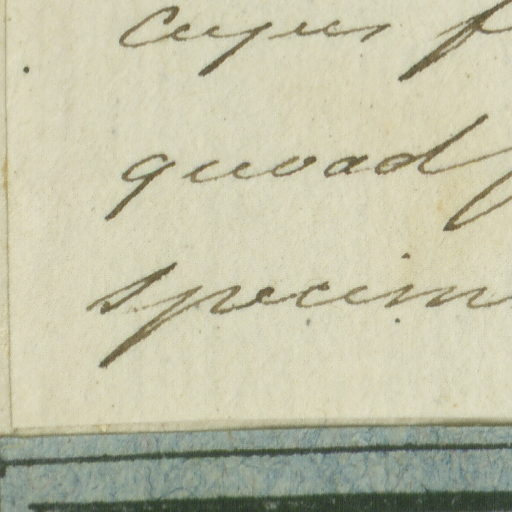 cujus
quoad
specim